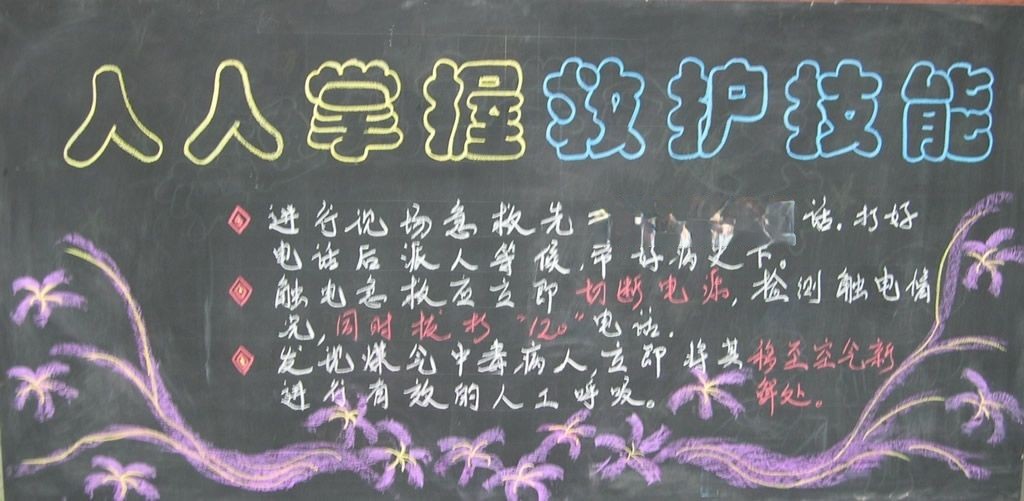 人人掌握救护技能
进行现场急救先 话.打好
电话后派人等候,带好病史下。
触电急救应立即切断电源,检测触电情
况,同时拨打"120"电话.
发现煤气中毒病人,立即将其移至空气新
鲜处。进行有效的人工呼吸。